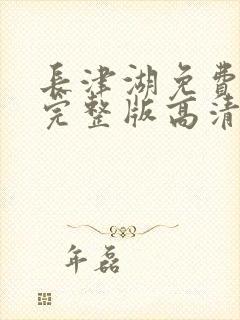 長津湖免費
完整版高清
年磊